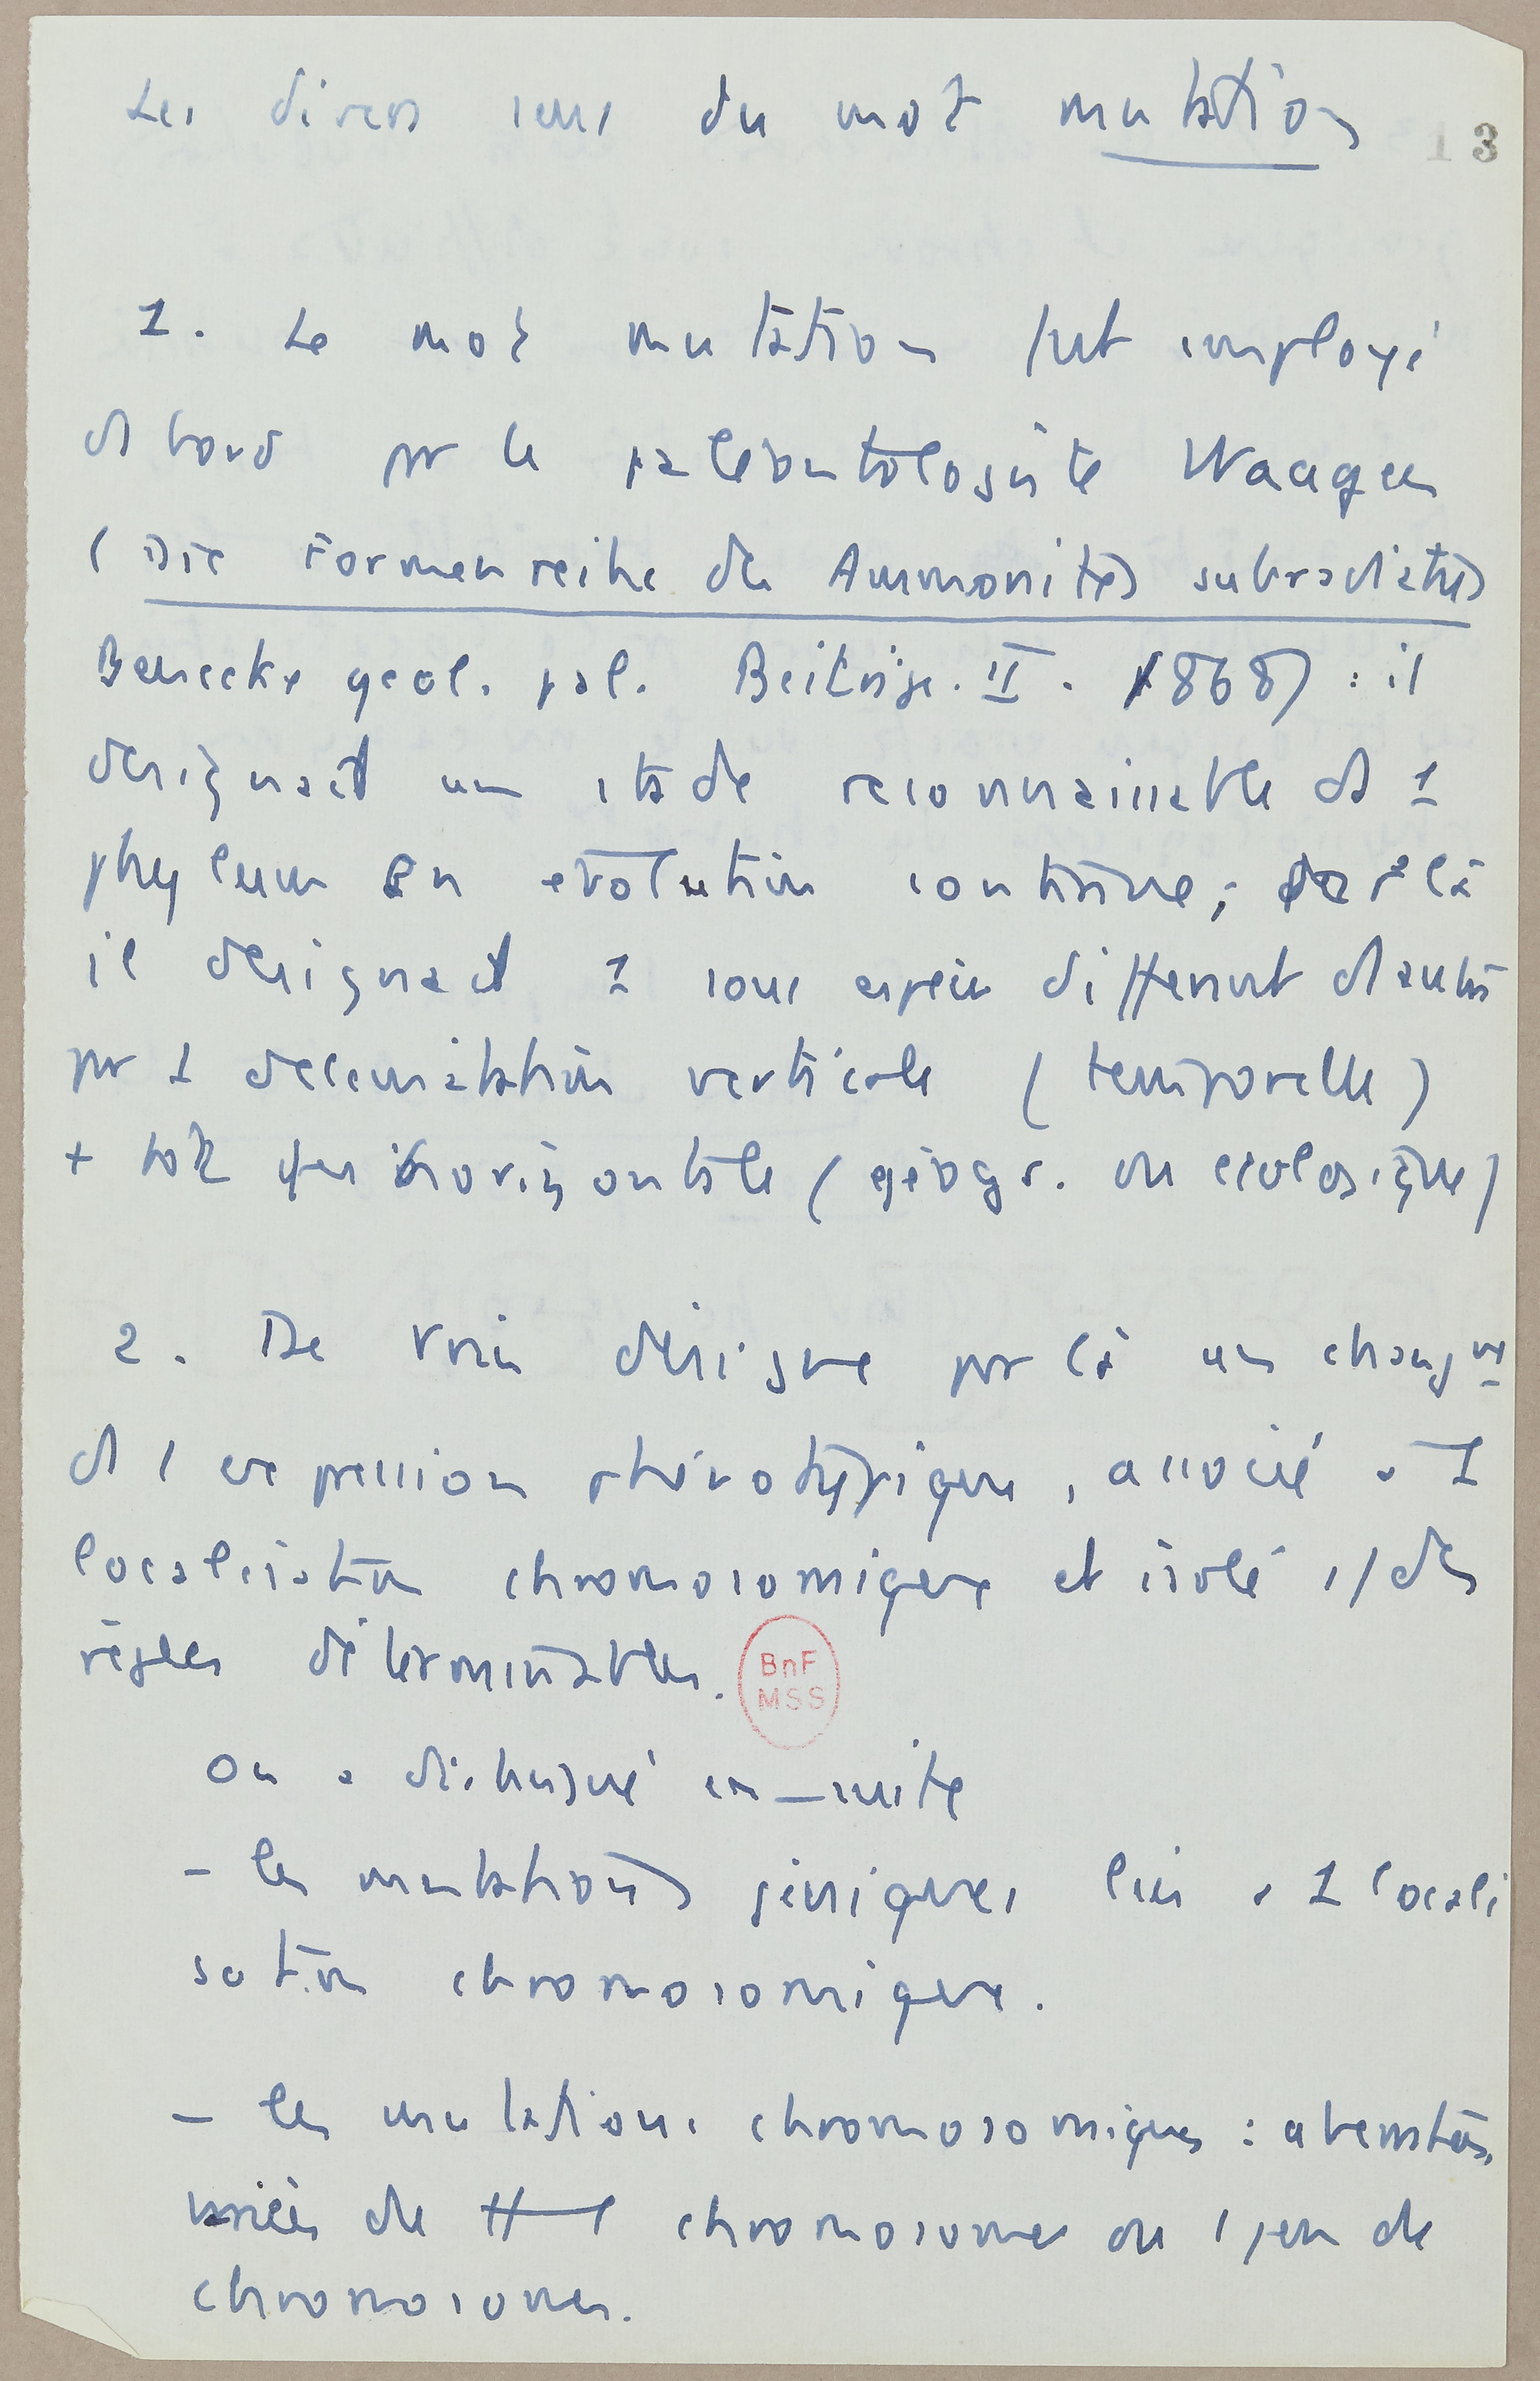 Les divers sens du mot mutation
13
1. Le mot mutation fut employé
d'abord pr le paléontologiste Waagen
(Die Formenreihe der Ammonites subradiatus
Benecke geol. pal. Beiträge. II. 1868) : il
designait un stade reconnaissable d' 1
phylum en evolution continue ; par là
il designait 1 sous espèce différent d'autres
pr 1 delimitation verticale (temporelle)
+ tôt que horizontale (géogr. ou ecologique)
2. De Vries désigne par là un changt
d l'expression phénotypique, associé à 1
localisation chromosomique et isolé s/ des
règles déterminables.
BnF
MSS
On a distingué en-suite
- les mutations géniques liées à 1 locali
sation chromosomique.
- les mutations chromosomiques : aberrations
variées de chromosomes ou 1 jeu de
chromosomes.